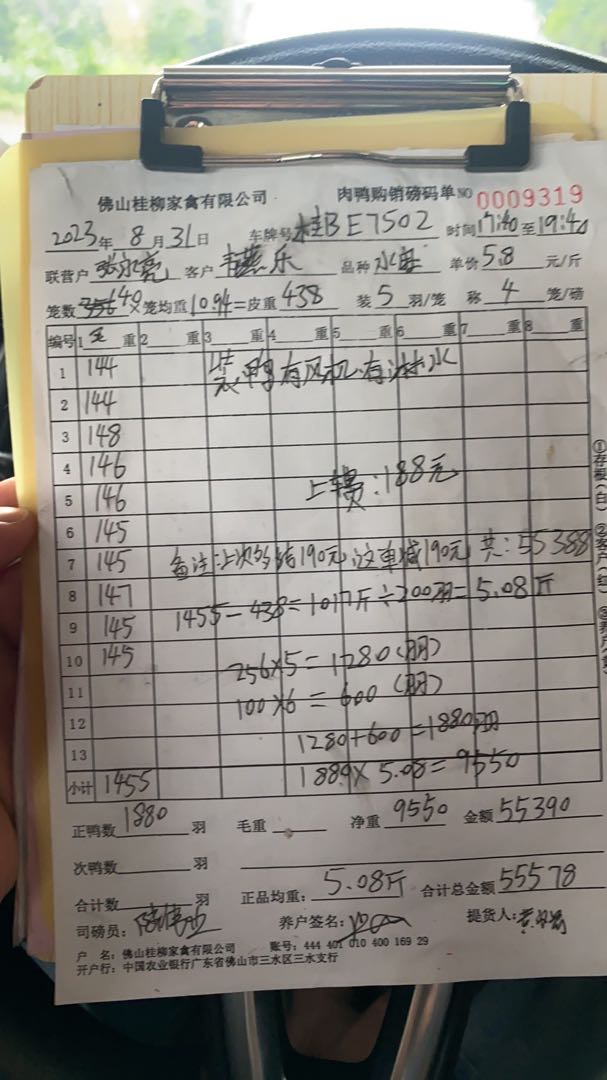 佛山桂柳家禽有限公司 肉鸭购销磅码单 NO 0009319
2023年 8月31日 车牌号 桂BE7502 时间17:40至19:40
联营户 客户 品种 水 单价5.8 元/斤
笼数 40×笼均重10.94=皮重 438 装 5 羽/笼 称 4 笼/磅
编号 1 重 2 重 3 重 4 重 5 重 6 重 7 重 8 重
1 144 装鸭有风机.有淋水
2 144
3 148
4 146
5 146 上车费:188元
6 145
7 145 备注:上次多结190元,这单减190元 共:55388
8 147 1455-438=1017斤÷200羽=5.08斤
9 145
10 145 256×5=1280(羽)
11 100×6=600(羽)
12 1280+600=1880羽
13 1880×5.08=9550
小计 1455
正鸭数 1880 羽 毛重 净重 9550 金额55390
次鸭数 羽
合计数 羽 正品均重: 5.08斤 合计总金额55578
司磅员: 养户签名: 提货人:
户 名: 佛山桂柳家禽有限公司 账号: 444 401 010 400 169 29
开户行: 中国农业银行广东省佛山市三水区三水支行
①存根(白) ②客户(红) ③养户